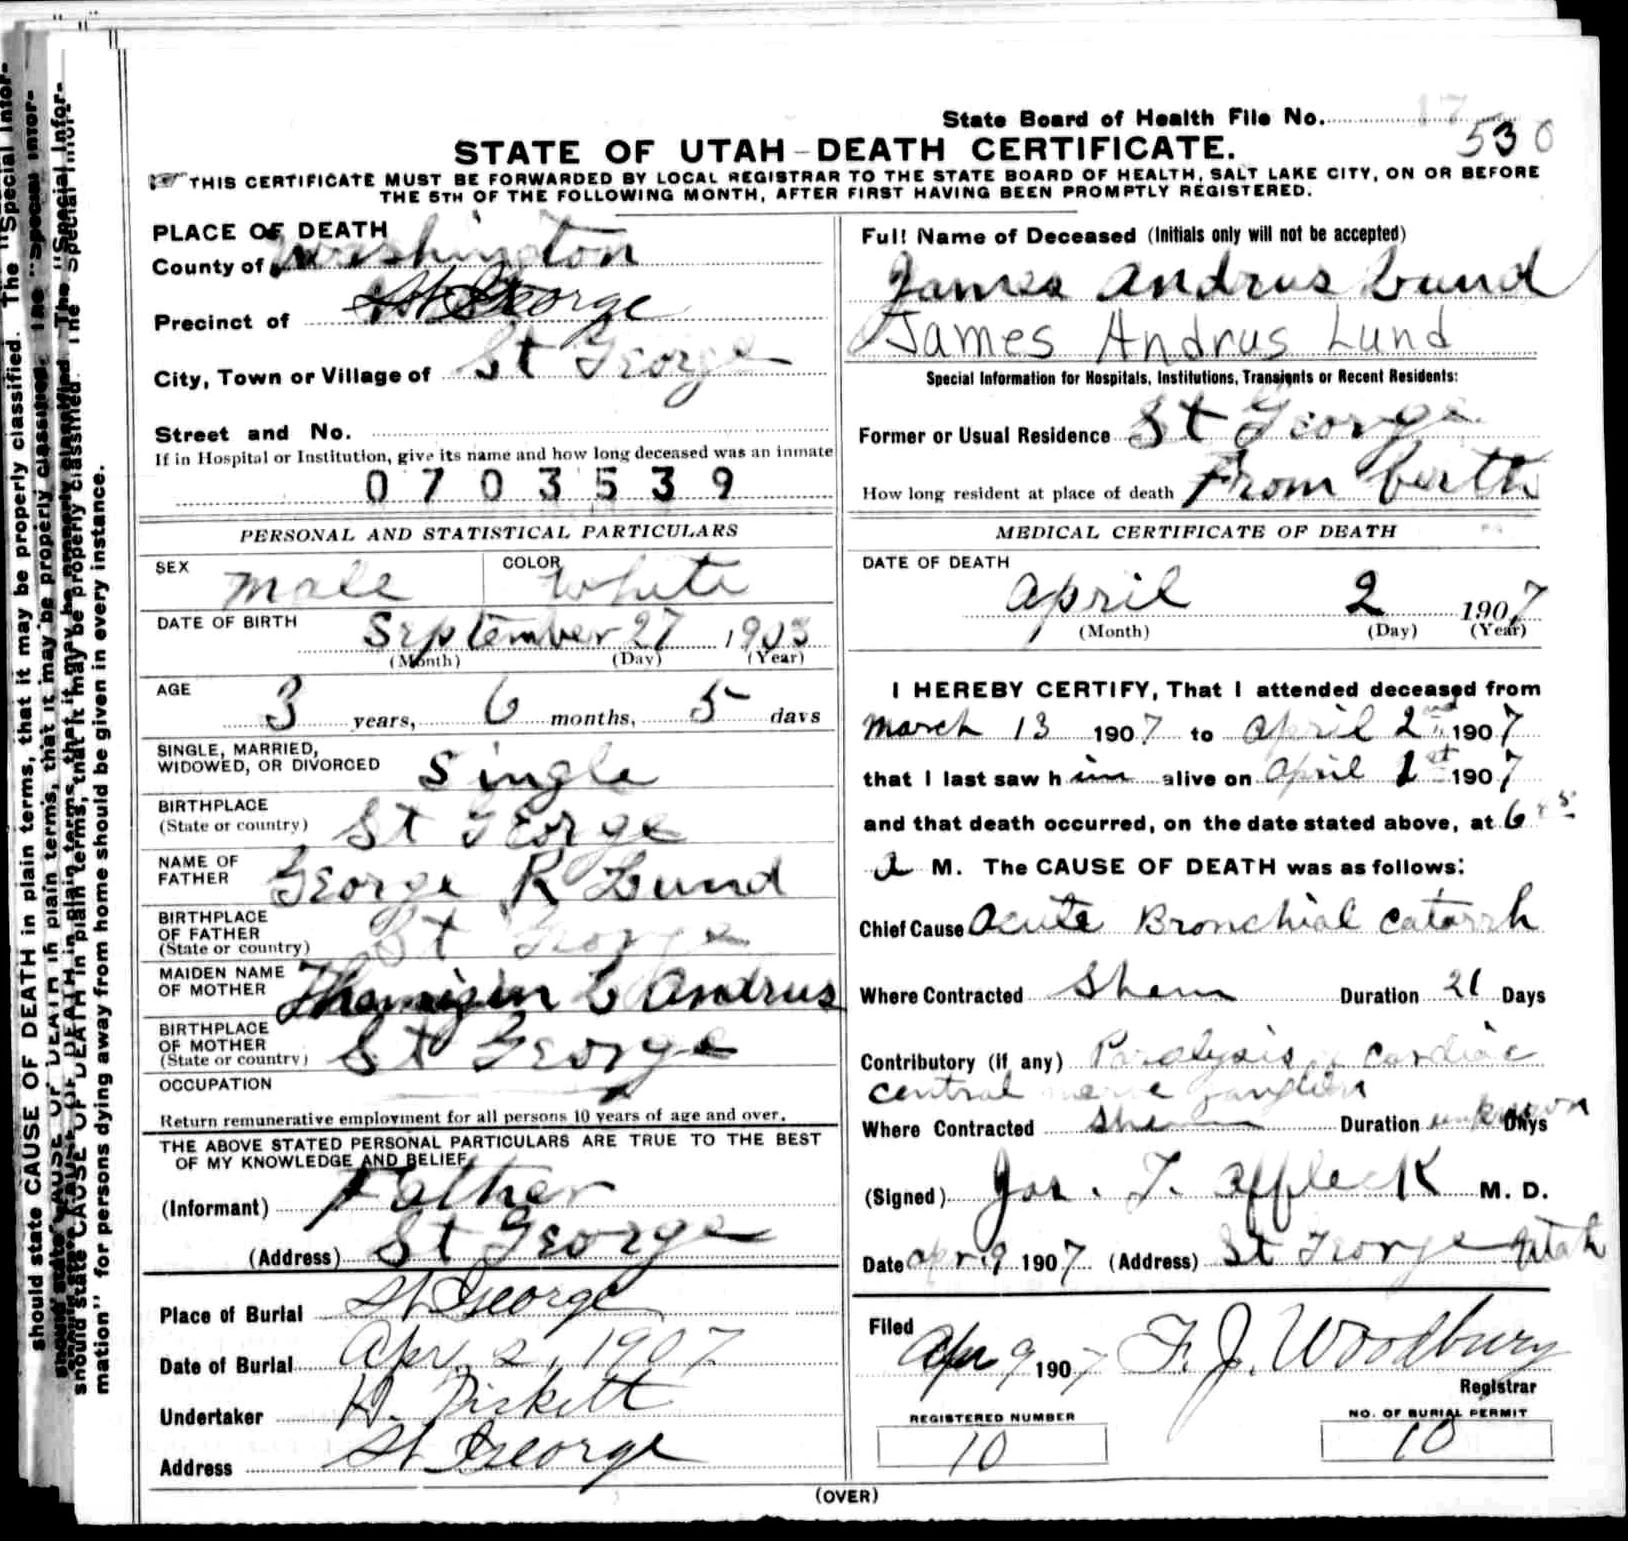 State Board of Health File No.
530
STATE OF UTAH-DEATH CERTIFICATE.
THIS CERTIFICATE MUST BE FORWARDED BY LOCAL REGISTRAR TO THE STATE BOARD OF HEALTH, SALT LAKE CITY, ON OR BEFORE
THE 5TH OF THE FOLLOWING MONTH, AFTER FIRST HAVING BEEN PROMPTLY REGISTERED.
PLACE OF DEATH
County of Washington
Precinct of St George
City, Town or Village of St George
Street and No.
If in Hospital or Institution, give its name and how long deceased was an inmate
0703539
PERSONAL AND STATISTICAL PARTICULARS
SEX male COLOR White
DATE OF BIRTH September 27 1903
(Month) (Day) (Year)
AGE 3 years, 6 months, 5 days
SINGLE, MARRIED,
WIDOWED, OR DIVORCED Single
BIRTHPLACE
(State or country) St George
NAME OF
FATHER George R Lund
BIRTHPLACE
OF FATHER
(State or country) St George
MAIDEN NAME
OF MOTHER L Andrus
BIRTHPLACE
OF MOTHER
(State or country) St George
OCCUPATION
Return remunerative employment for all persons 10 years of age and over.
THE ABOVE STATED PERSONAL PARTICULARS ARE TRUE TO THE BEST
OF MY KNOWLEDGE AND BELIEF.
(Informant) Father
(Address) St George
Place of Burial St George
Date of Burial Apr. 2, 1907
Undertaker H. Pickett
Address St George
Full Name of Deceased (Initials only will not be accepted)
James Andrus Lund
James Andrus Lund
Special Information for Hospitals, Institutions, Transients or Recent Residents:
Former or Usual Residence St George
How long resident at place of death From birth
MEDICAL CERTIFICATE OF DEATH
DATE OF DEATH
April 2 1907
(Month) (Day) (Year)
I HEREBY CERTIFY, That I attended deceased from
march 13 1907 to april 2nd 1907
that I last saw h im alive on April 1st 1907
and that death occurred, on the date stated above, at 6
a M. The CAUSE OF DEATH was as follows:
Chief Cause Acute Bronchial Catarrh
Where Contracted Duration 21 Days
Contributory (if any) Paralysis Cardiac
central nerve ganglion
Where Contracted Duration unknown Days
(Signed) Jos. T. Affleck M. D.
Date Apr 9 1907 (Address) St George Utah
Filed
Apr 9 1907 F. J. Woodbury
Registrar
REGISTERED NUMBER
10
NO. OF BURIAL PERMIT
10
(OVER)
should state CAUSE OF DEATH in plain terms, that it may be properly classified. The "Special Infor-
mation" for persons dying away from home should be given in every instance.